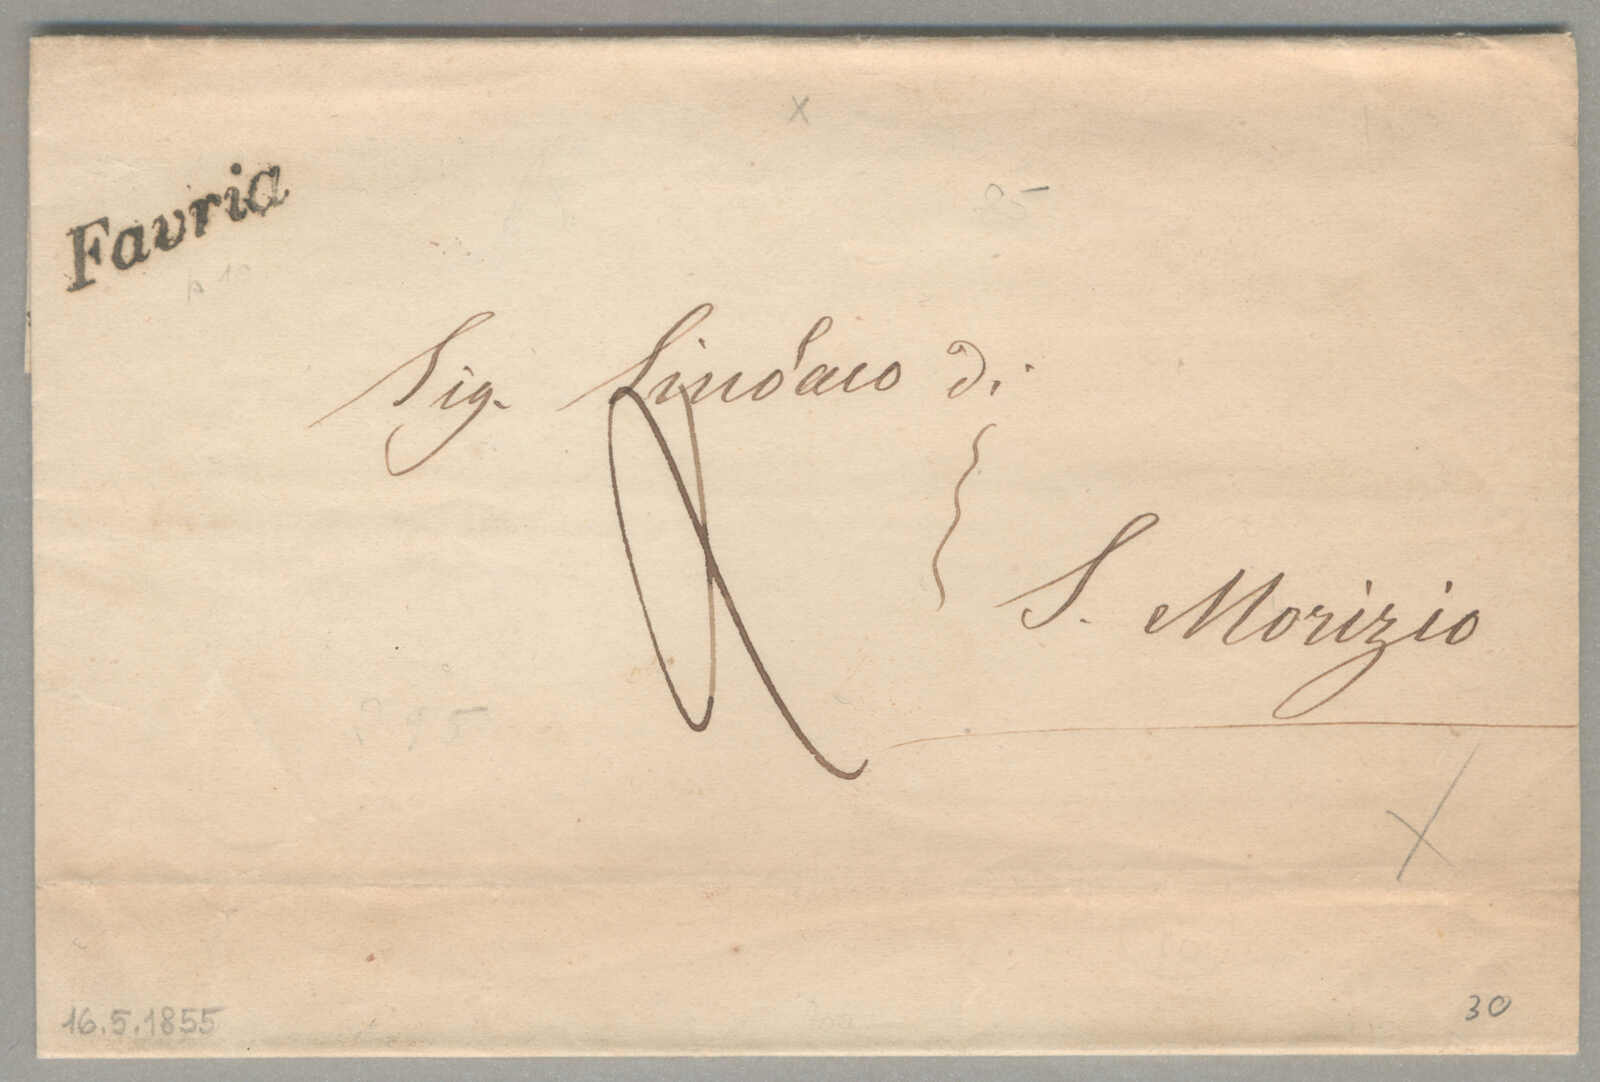 x
85
Favria
p 10
Sig. Sindaco di
S. Morizio
X
16.5.1855
30